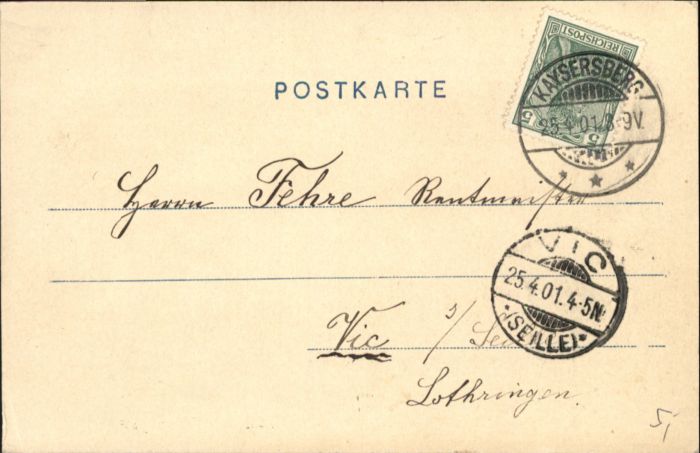 REICHSPOST
5 5
KAYSERSBERG
25.4.01.8-9V.
POSTKARTE
Herrn Fehre Rentmeister
VIC
25.4.01.4-5N.
(SEILLE)
Vic s/ Seille
Lothringen